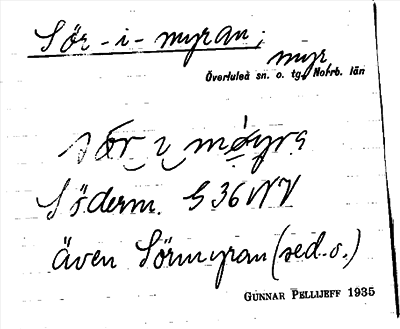 Sör-i-myran;
myr,
Överluleå sn. o. tg., Norrb. län
Söderm. G 36 NV
även Sörmyran (sed. o.)
GUNNAR PELLIJEFF 1935